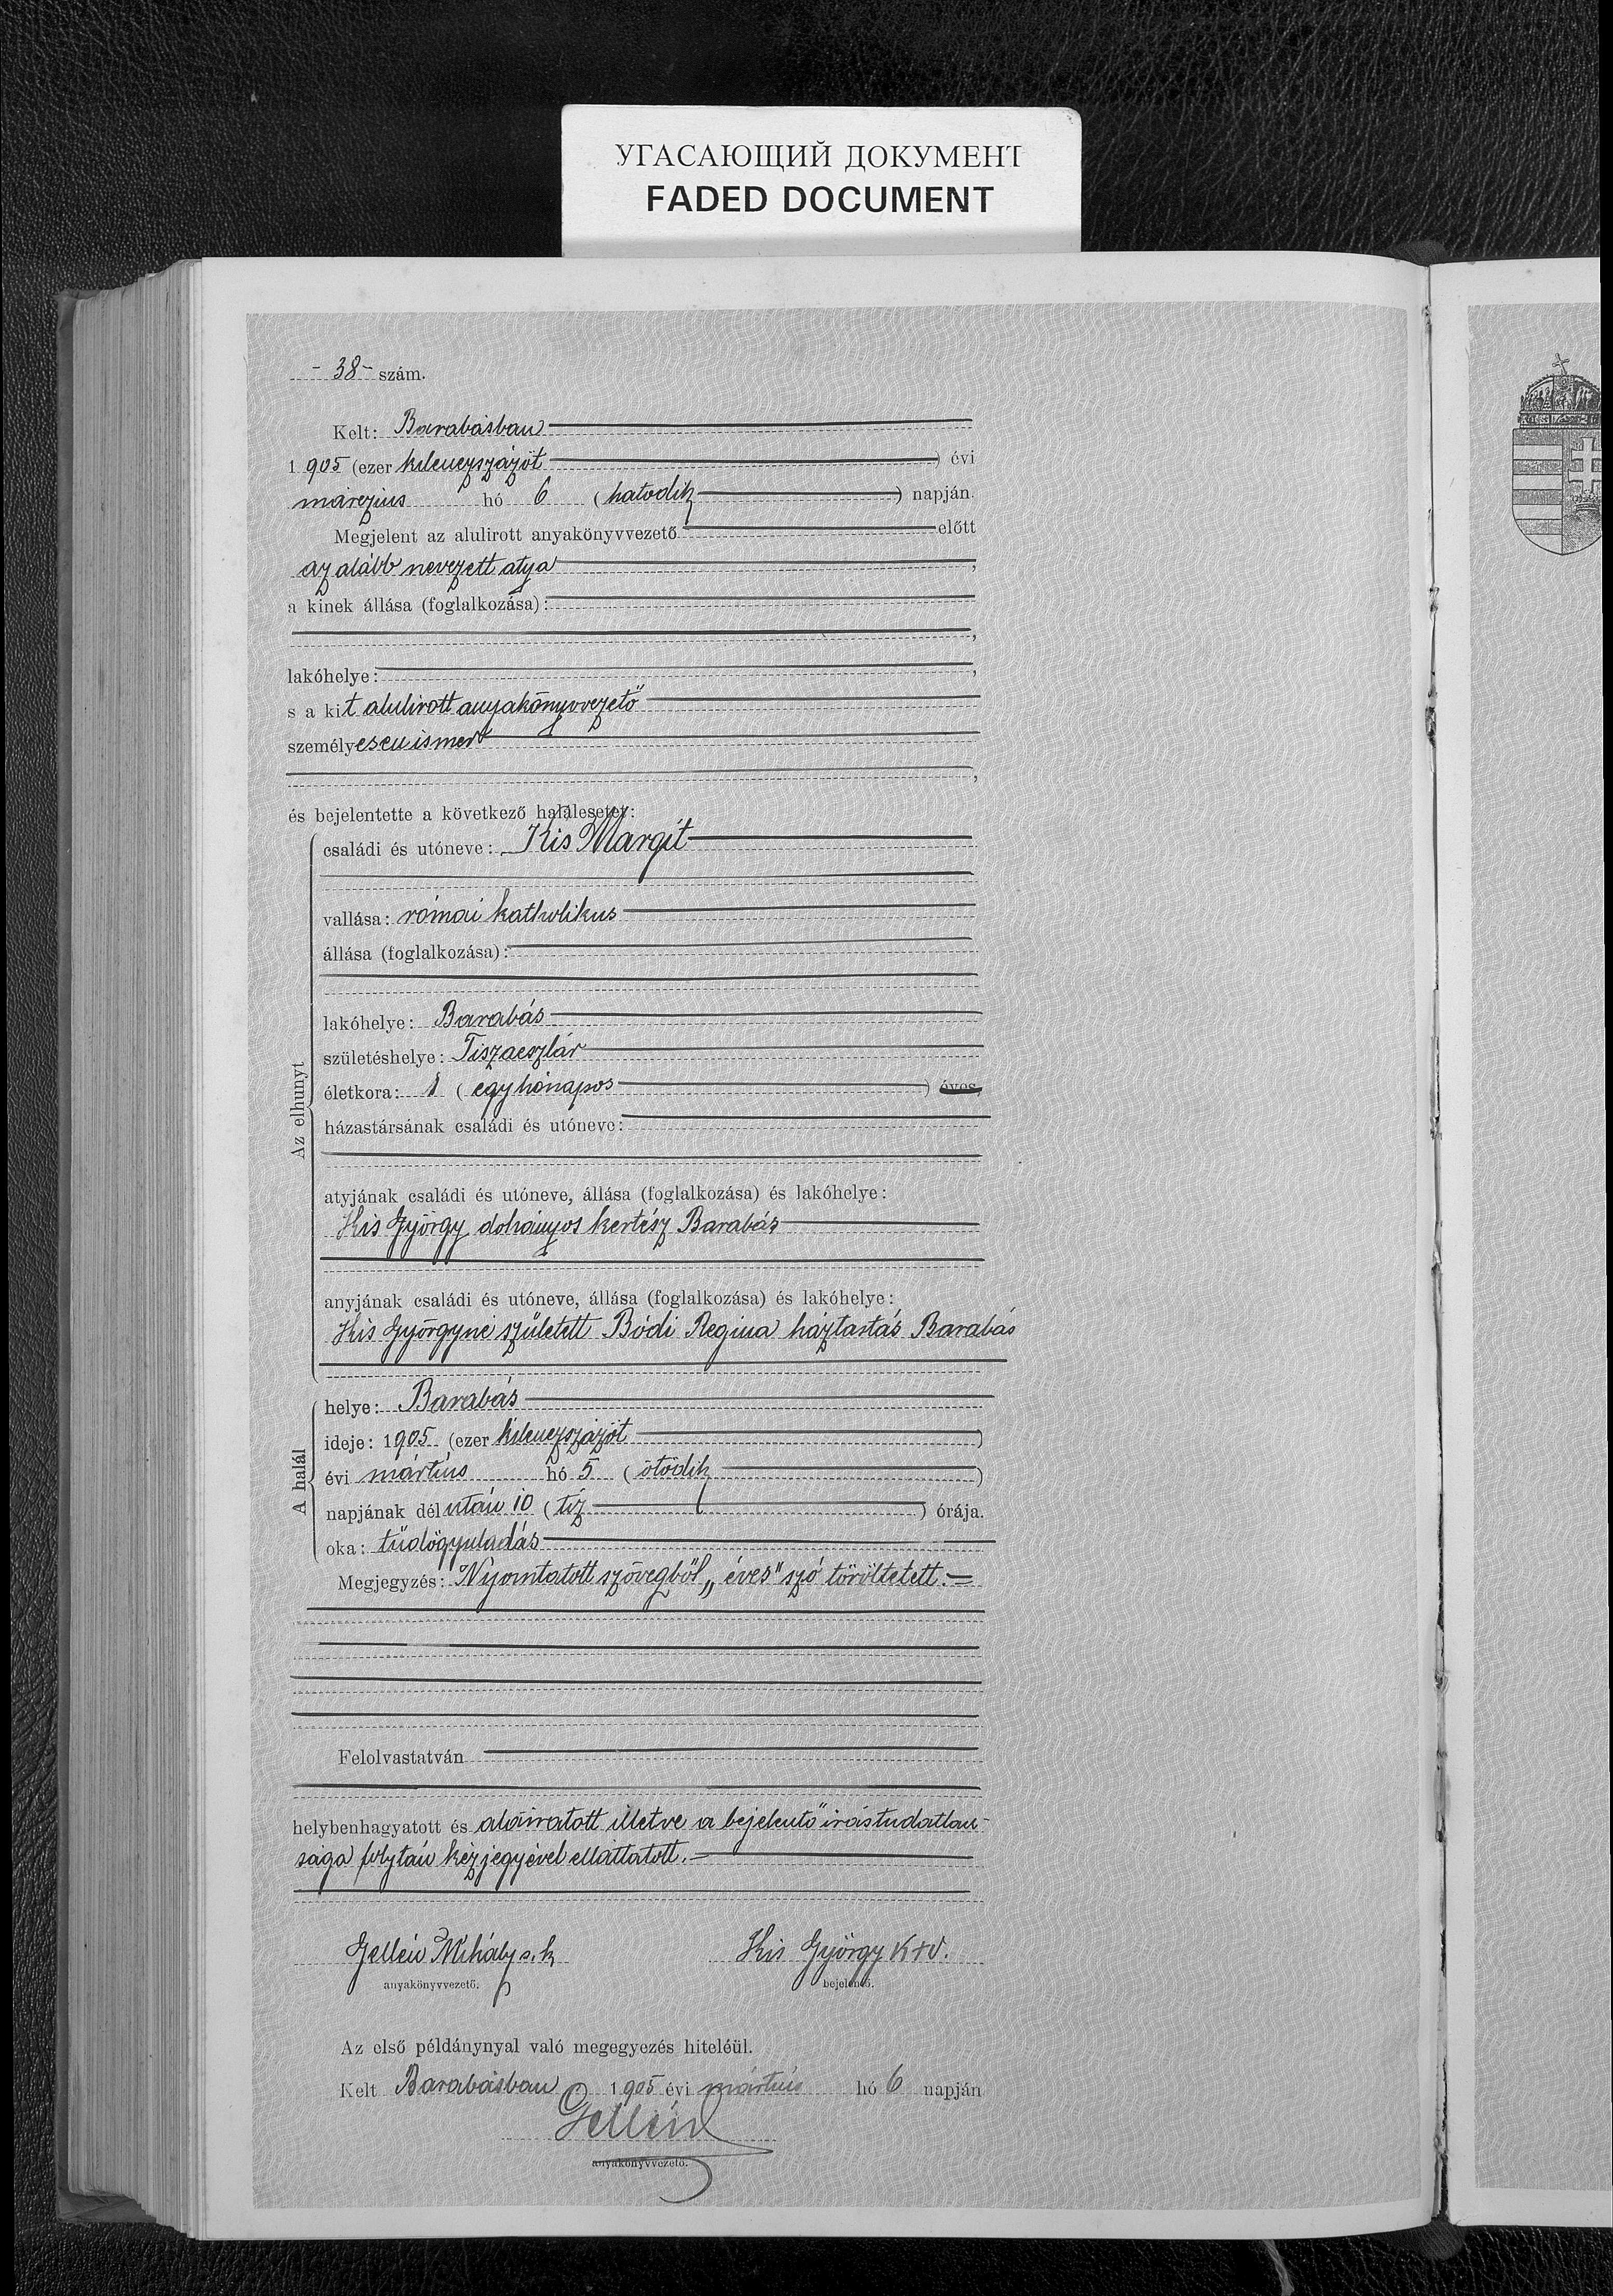 УГАСАЮЩИЙ ДОКУМЕНТ
FADED DOCUMENT
- 38 - szám.
Kelt: Barabásban
1905 (ezer kilenczszázöt) évi
márczius hó 6 (hatodik) napján.
Megjelent az alulirott anyakönyvvezető előtt
az alább nevezett atya,
a kinek állása (foglalkozása):
,
lakóhelye: ,
s a kit alulirott anyakönyvvezető
személyesen ismer
,
és bejelentette a következő halálesetet:
Az elhunyt
családi és utóneve: Kis Margit
vallása: római katholikus
állása (foglalkozása):
lakóhelye: Barabás
születéshelye: Tiszaeszlár
életkora: 1 (egy hónapos) éves,
házastársának családi és utóneve:
atyjának családi és utóneve, állása (foglalkozása) és lakóhelye:
Kis György dohányos kertész Barabás
anyjának családi és utóneve, állása (foglalkozása) és lakóhelye:
Kis Györgyné született Bódi Regina háztartás Barabás
A halál
helye: Barabás
ideje: 1905 (ezer kilenczszázöt)
évi mártius hó 5 (ötödik)
napjának délután 10 (tíz) órája.
oka: tüdőgyuladás
Megjegyzés: Nyomtatott szövegből „éves" szó töröltetett.=
Felolvastatván
helybenhagyatott és aláiratott illetve a bejelentő irástudatlan-
sága folytán kézjegyével elláttatott.-
Gellén Mihály s. k
Kis György K+V.
anyakönyvvezető.
bejelentő.
Az első példánynyal való megegyezés hiteléül.
Kelt Barabásban 1905 évi mártius hó 6 napján
Gellén
anyakönyvvezető.